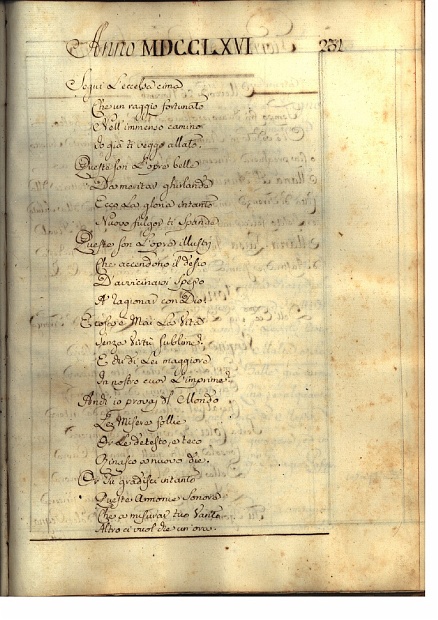 Anno MDCCLXVI 231
Segui l'eccelsa cima
Che un raggio fortunato
Nell'immenso camino
Io già ti veggo allato.
Queste son l'opre belle
Da meritar ghirlande
Ecco la gloria intanto
Nuovo fulgor ti spande
Queste son l'opre illustri
Che accendono il desio
D'avvicinarsi spesso
A ragionar con Dio!
E cos'è mai la vita
Senza virtù sublime?
E chi di lei maggiore
In nostro cuor l'imprime?
Anch'io provai del Mondo
Le misere follie
Or le detesto, e teco
Rinasco a nuovo die.
Or tu gradisci intanto
Queste armonie sonore
Che a misurar tuo vanto
Altro ci vuol che un'ora.